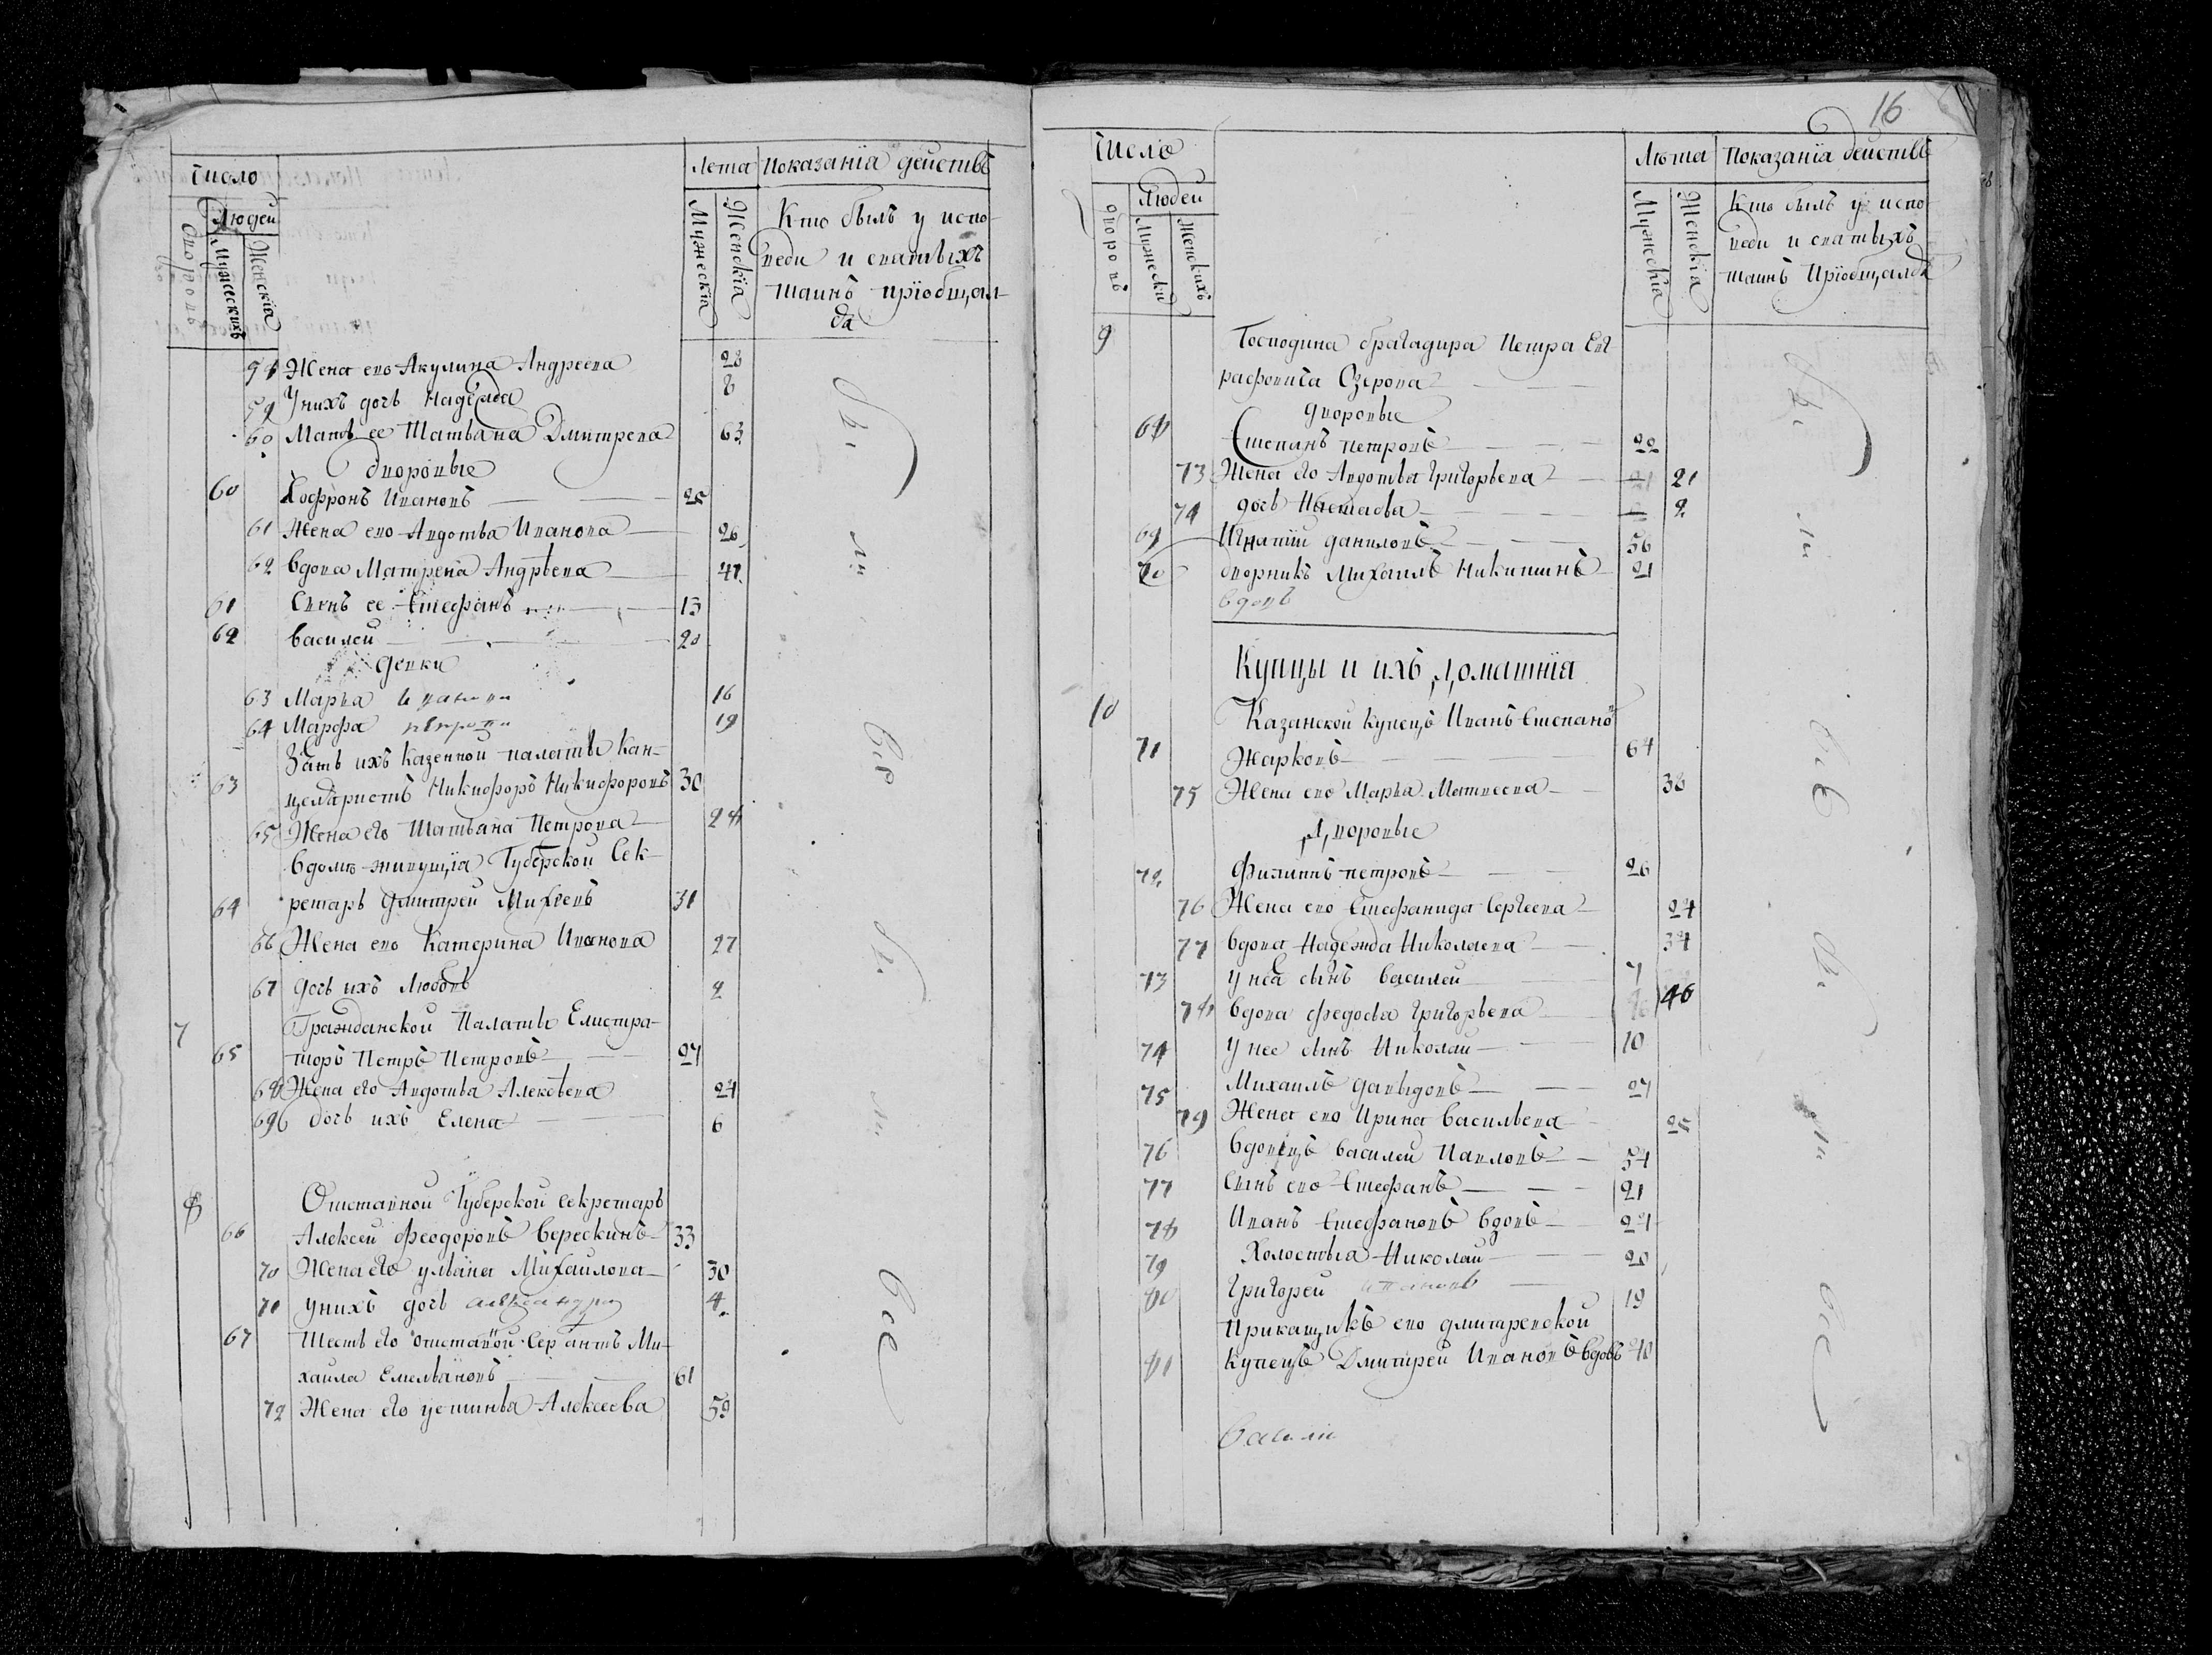 Число
Людей
дворовъ
Мужескихъ
Женскïа
Лета
Мужескïа
Женскïа
Показанïа действъ
Кто былъ у испо-
веди и святыхъ
таинъ прïобщал-
ся
58 Жена ево Акулина Андреева 28
59 У нихъ дочь Надежда 8
60 Мать ее Татьяна Дмитрева 63
дворовые
60 Хофронъ Ивановъ 25
61 Жена ево Авдотья Иванова 26
62 Вдова Матрена Андрѣева 41
61 Сынъ ее Стефанъ 13
62 Василей 20
девки
63 Марья 16
64 Марфа петрова 19
Зять ихъ Казенной палаты Кан-
63 целяристъ Никифоръ Никифоровъ 30
65 Жена его Татьяна Петрова 28
В доме живущïа Губерской Сек-
64 ретарь Дмитрей Михеевъ 31
66 Жена ево Катерина Иванова 27
67 Дочь ихъ Любовь 2
7 Гражданской Палаты Елистра-
65 торъ Петръ Петровъ 27
68 Жена его Авдотья Алексѣева 24
69 дочь ихъ Елена 6
8 Отставной Губерской Секретарь
66 Алексей Феодоровъ Верескинъ 33
70 Жена его Ульяна Михаилова 30
71 У нихъ дочь александра 4
67 Тесть его отставной Сержантъ Ми-
хаила Емельяновъ 61
72 Жена его Устинья Алексеева 59
Всѣ
ли
все
16
Число
Людей
дворовъ
Мужески
Женскихъ
Лѣта
Мужескïа
Женскïа
Показанïа действъ
Кто былъ у испо
веди и святыхъ
таинъ Прïобщалса
9 Господина брагадира Петра Евг
рафовича Озерова
дворовые
68 Степанъ петровъ 22
73 Жена его Авдотья Григорьева 21
74 дочь Настасья 2
69 Игнатïй даниловъ 56
70 дворникъ Михаилъ Никитинъ 21
вдовъ
Купцы и ихъ домашнïа
10 Казанской Купецъ Иванъ Степано
71 Жарковъ 64
75 Жена ево Марья Матвеева 38
Дворовые
72 Филиппъ петровъ 26
76 Жена ево Стефанида Сергеева 24
77 Вдова Надежда Николаева 34
73 У неа сынъ Василей 7
78 Вдова Федосья Григорьева 46
74 У нее сынъ Николаи 10
75 Михаилъ Давыдовъ 27
79 Жена ево Ирина Васильева 25
76 Вдовецъ Василей Павловъ 54
77 Сынъ ево Стефанъ 21
78 Иванъ Стефановъ вдовъ 27
79 Холостыа Николаи 20
80 Григорей 19
Прикащикъ ево дмитревской
81 Купецъ Дмитрей Ивановъ вдовъ 40